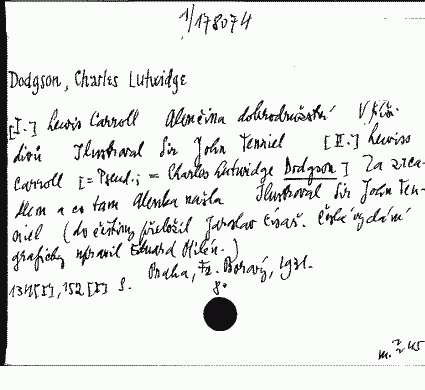 1/178074
Dodgson, Charles Lutwidge
[I.] Lewis Carroll Alenčina dobrodružství V říši
divů Ilustroval Sir John Tenniel [II.] Lewiss
Carroll [= Pseud.; = Charles Lutwidge Dodgson] Za zrca-
dlem a co tam Alenka našla Ilustroval Sir John Ten-
niel (do češtiny přeložil Jaroslav Císař. České vydání
graficky upravil Eduard Milén.)
Praha, Fr. Borový, 1931.
134 [I], 152 [I] S. 8°